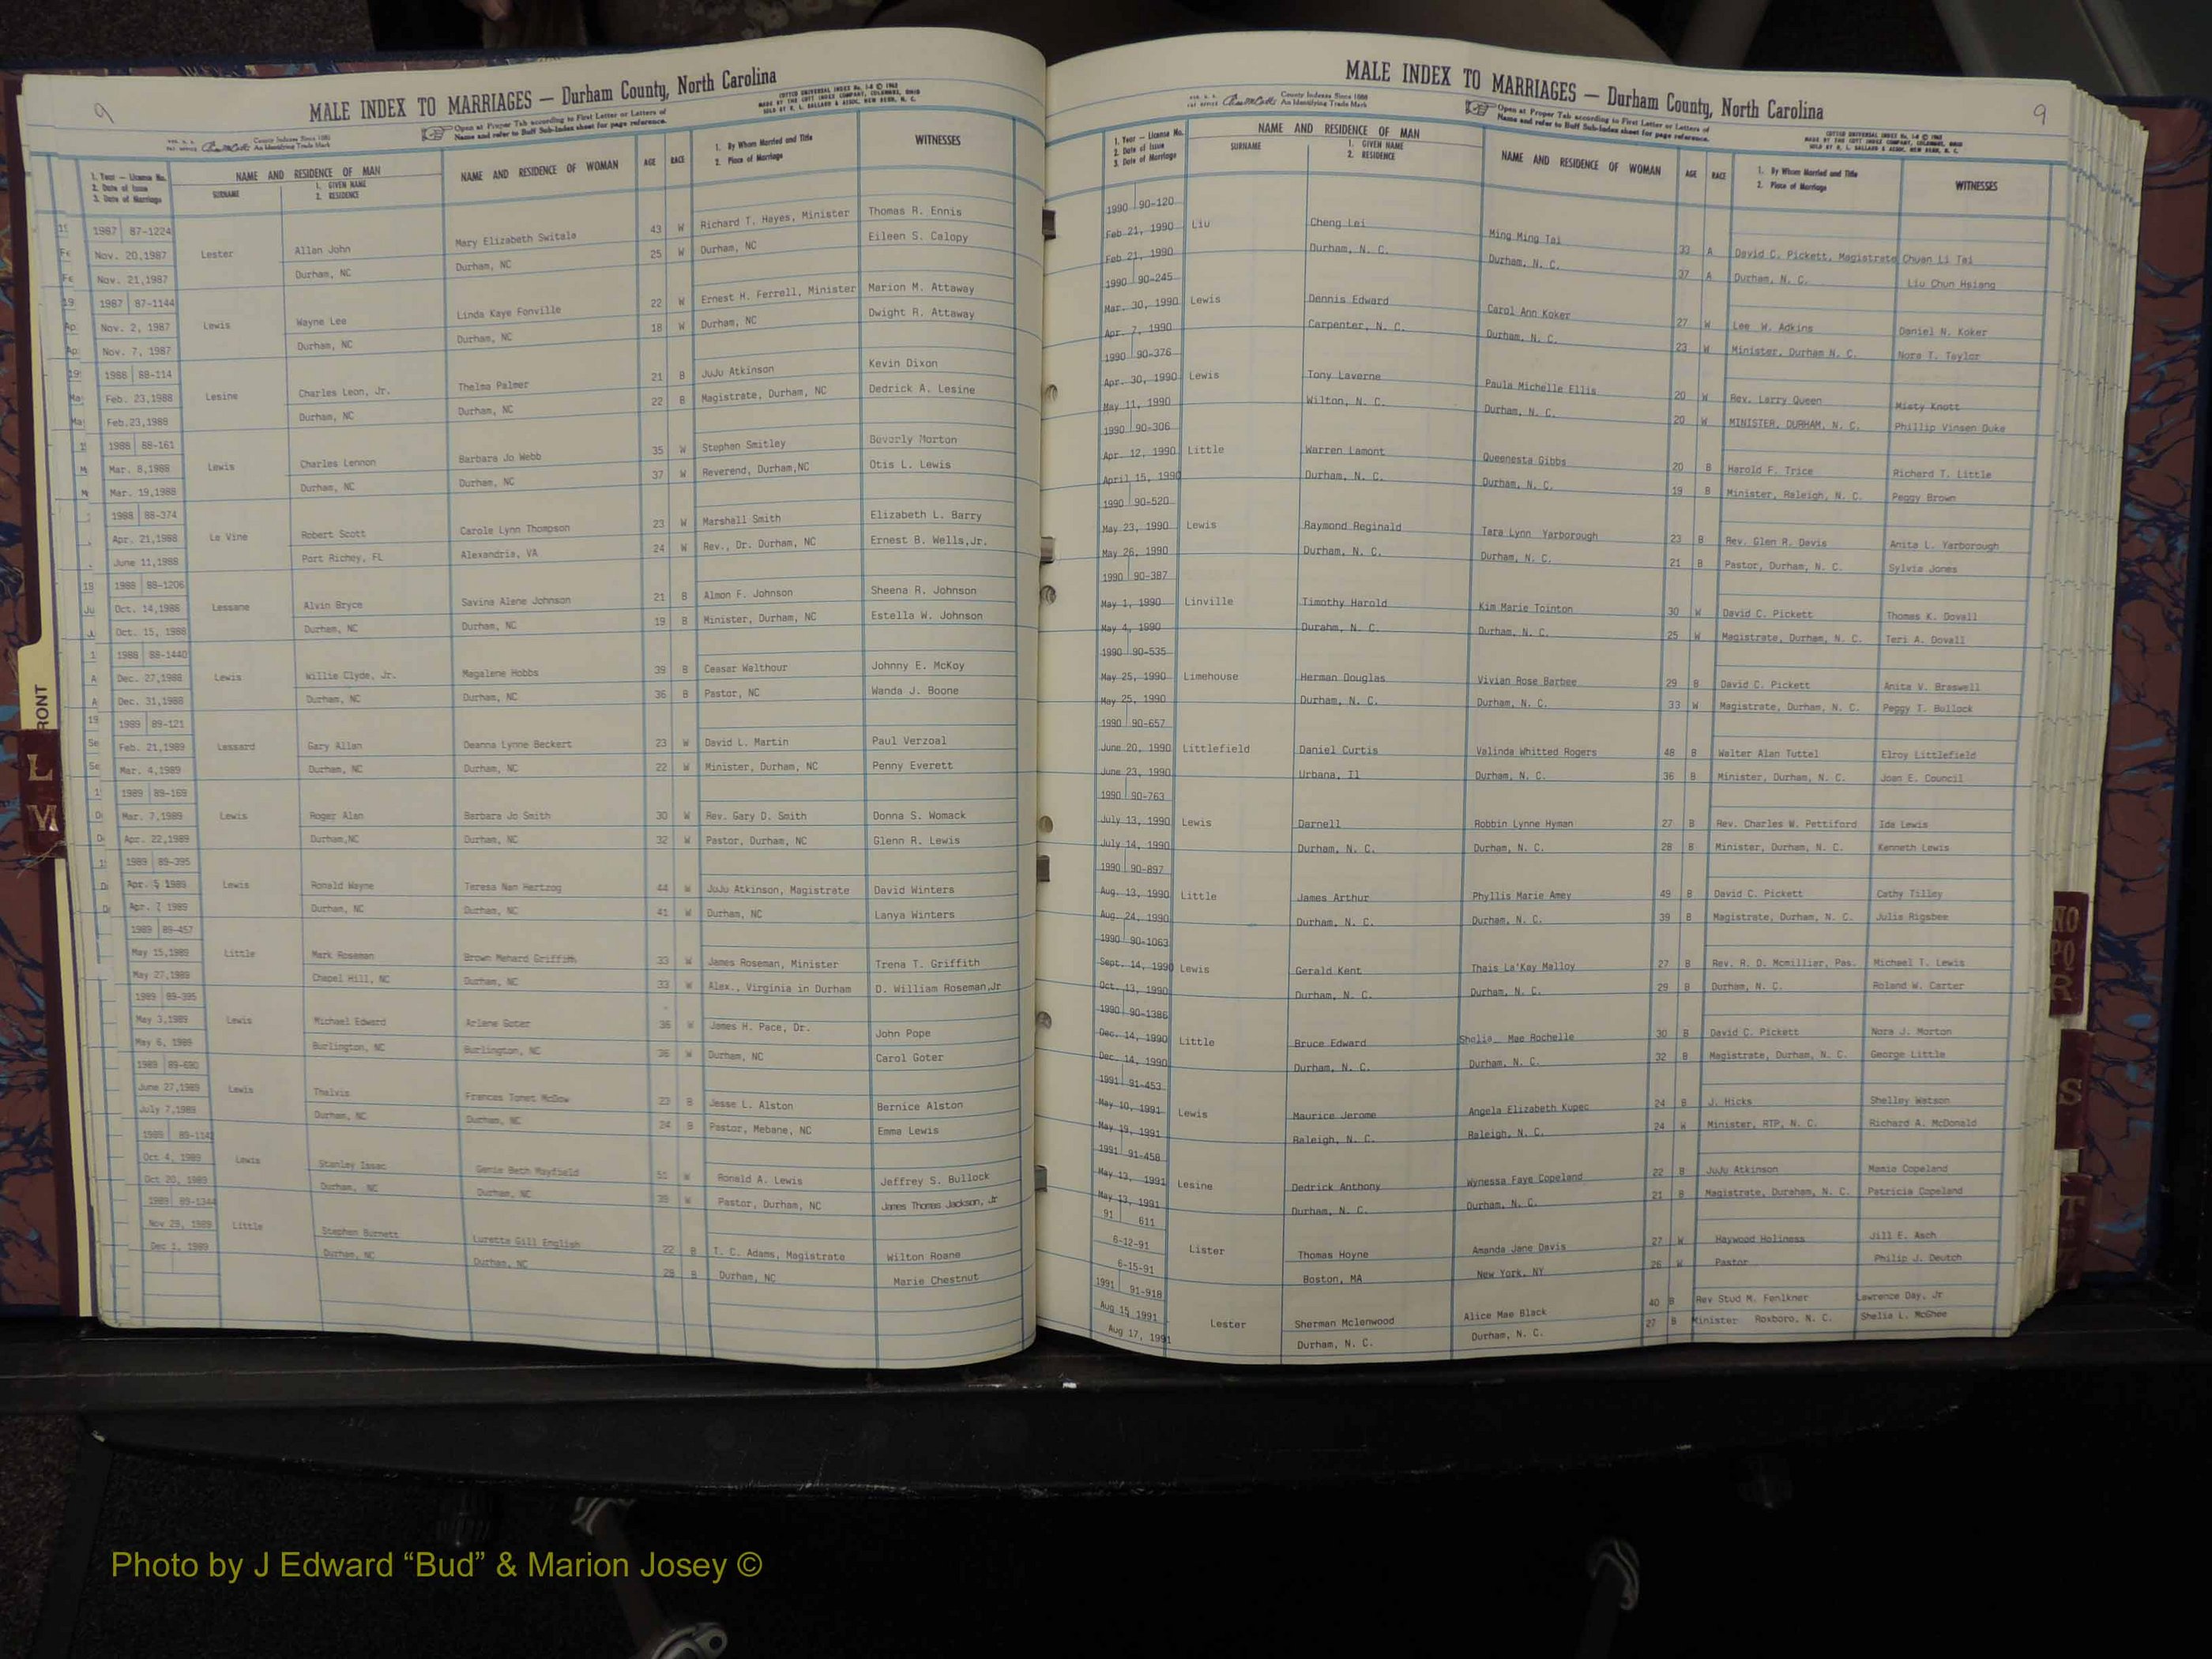 9
MALE INDEX TO MARRIAGES — Durham County, North Carolina
County Indexes Since 1888
An Identifying Trade Mark
Open at Proper Tab according to First Letter or Letters of
Name and refer to Buff Sub-Index sheet for page reference.
COTTCO UNIVERSAL INDEX No. 1-6 © 1962
MADE BY THE COTT INDEX COMPANY, COLUMBUS, OHIO
SOLD BY O. L. BALLARD & ASSOC. NEW BERN, N. C.
1. Year — License No.
2. Date of Issue
3. Date of Marriage
NAME AND RESIDENCE OF MAN
SURNAME
1. GIVEN NAME
2. RESIDENCE
NAME AND RESIDENCE OF WOMAN
AGE
RACE
1. By Whom Married and Title
2. Place of Marriage
WITNESSES
1987 87-1224
Nov. 20,1987 Lester Allan John Mary Elizabeth Switala 43 W Richard T. Hayes, Minister Thomas R. Ennis
Nov. 21,1987 Durham, NC Durham, NC 25 W Durham, NC Eileen S. Calopy
1987 87-1144
Nov. 2, 1987 Lewis Wayne Lee Linda Kaye Fonville 22 W Ernest H. Ferrell, Minister Marion M. Attaway
Nov. 7, 1987 Durham, NC Durham, NC 18 W Durham, NC Dwight R. Attaway
1988 88-114
Feb. 23,1988 Lesine Charles Leon, Jr. Thelma Palmer 21 B JuJu Atkinson Kevin Dixon
Feb.23,1988 Durham, NC Durham, NC 22 B Magistrate, Durham, NC Dedrick A. Lesine
1988 88-161
Mar. 8,1988 Lewis Charles Lennon Barbara Jo Webb 35 W Stephen Smitley Beverly Morton
Mar. 19,1988 Durham, NC Durham, NC 37 W Reverend, Durham,NC Otis L. Lewis
1988 88-374
Apr. 21,1988 Le Vine Robert Scott Carole Lynn Thompson 23 W Marshall Smith Elizabeth L. Barry
June 11,1988 Port Richey, FL Alexandria, VA 24 W Rev., Dr. Durham, NC Ernest B. Wells,Jr.
1988 88-1206
Oct. 14,1988 Lessane Alvin Bryce Savina Alene Johnson 21 B Almon F. Johnson Sheena R. Johnson
Oct. 15, 1988 Durham, NC Durham, NC 19 B Minister, Durham, NC Estella W. Johnson
1988 88-1440
Dec. 27,1988 Lewis Willie Clyde, Jr. Magalene Hobbs 39 B Ceasar Walthour Johnny E. McKoy
Dec. 31,1988 Durham, NC Durham, NC 36 B Pastor, NC Wanda J. Boone
1989 89-121
Feb. 21,1989 Lessard Gary Allan Deanna Lynne Beckert 23 W David L. Martin Paul Verzoal
Mar. 4,1989 Durham, NC Durham, NC 22 W Minister, Durham, NC Penny Everett
1989 89-169
Mar. 7,1989 Lewis Roger Alan Barbara Jo Smith 30 W Rev. Gary D. Smith Donna S. Womack
Apr. 22,1989 Durham,NC Durham, NC 32 W Pastor, Durham, NC Glenn R. Lewis
1989 89-395
Apr. 5 1989 Lewis Ronald Wayne Teresa Nan Hertzog 44 W JuJu Atkinson, Magistrate David Winters
Apr. 7 1989 Durham, NC Durham, NC 41 W Durham, NC Lanya Winters
1989 89-457
May 15,1989 Little Mark Roseman Brown Mehard Griffith 33 W James Roseman, Minister Trena T. Griffith
May 27,1989 Chapel Hill, NC Durham, NC 33 W Alex., Virginia in Durham D. William Roseman,Jr
1989 89-395
May 3,1989 Lewis Michael Edward Arlene Goter 36 W James H. Pace, Dr. John Pope
May 6, 1989 Burlington, NC Burlington, NC 36 W Durham, NC Carol Goter
1989 89-690
June 27,1989 Lewis Thelvis Frances Tonet McGow 23 B Jesse L. Alston Bernice Alston
July 7,1989 Durham, NC Durham, NC 24 B Pastor, Mebane, NC Emma Lewis
1989 89-1142
Oct 4, 1989 Lewis Stanley Isaac Genie Beth Mayfield 51 W Ronald A. Lewis Jeffrey S. Bullock
Oct 20, 1989 Durham, NC Durham, NC 39 W Pastor, Durham, NC James Thomas Jackson, Jr
1989 89-1344
Nov 29, 1989 Little Stephen Burnett Lurette Gill English 22 B T. C. Adams, Magistrate Wilton Roane
Dec 1, 1989 Durham, NC Durham, NC 28 B Durham, NC Marie Chestnut
MALE INDEX TO MARRIAGES — Durham County, North Carolina
9
County Indexes Since 1888
An Identifying Trade Mark
Open at Proper Tab according to First Letter or Letters of
Name and refer to Buff Sub-Index sheet for page reference.
COTTCO UNIVERSAL INDEX No. 1-6 © 1962
MADE BY THE COTT INDEX COMPANY, COLUMBUS, OHIO
SOLD BY O. L. BALLARD & ASSOC. NEW BERN, N. C.
1. Year — License No.
2. Date of Issue
3. Date of Marriage
NAME AND RESIDENCE OF MAN
SURNAME
1. GIVEN NAME
2. RESIDENCE
NAME AND RESIDENCE OF WOMAN
AGE
RACE
1. By Whom Married and Title
2. Place of Marriage
WITNESSES
1990 90-120
Feb 21, 1990 Liu Cheng Lei Ming Ming Tai 33 A David C. Pickett, Magistrate Chuan Li Tai
Feb 21, 1990 Durham, N. C. Durham, N. C. 37 A Durham, N. C. Liu Chun Hsiang
1990 90-245
Mar. 30, 1990 Lewis Dennis Edward Carol Ann Koker 27 W Lee W. Adkins Daniel N. Koker
Apr. 7, 1990 Carpenter, N. C. Durham, N. C. 23 W Minister, Durham N. C. Nora T. Taylor
1990 90-376
Apr. 30, 1990 Lewis Tony Laverne Paula Michelle Ellis 20 W Rev. Larry Queen Misty Knott
May 11, 1990 Wilton, N. C. Durham, N. C. 20 W MINISTER, DURHAM, N. C. Phillip Vinsen Duke
1990 90-306
Apr. 12, 1990 Little Warren Lamont Queenesta Gibbs 20 B Harold F. Trice Richard T. Little
April 15, 1990 Durham, N. C. Durham, N. C. 19 B Minister, Raleigh, N. C. Peggy Brown
1990 90-520
May 23, 1990 Lewis Raymond Reginald Tara Lynn Yarborough 23 B Rev. Glen R. Davis Anita L. Yarborough
May 26, 1990 Durham, N. C. Durham, N. C. 21 B Pastor, Durham, N. C. Sylvia Jones
1990 90-387
May 1, 1990 Linville Timothy Harold Kim Marie Tointon 30 W David C. Pickett Thomas K. Dovall
May 4, 1990 Durahm, N. C. Durham, N. C. 25 W Magistrate, Durham, N. C. Teri A. Dovall
1990 90-535
May 25, 1990 Limehouse Herman Douglas Vivian Rose Barbee 29 B David C. Pickett Anita V. Braswell
May 25, 1990 Durham, N. C. Durham, N. C. 33 W Magistrate, Durham, N. C. Peggy T. Bullock
1990 90-657
June 20, 1990 Littlefield Daniel Curtis Valinda Whitted Rogers 48 B Walter Alan Tuttel Elroy Littlefield
June 23, 1990 Urbana, Il Durham, N. C. 36 B Minister, Durham, N. C. Joan E. Council
1990 90-763
July 13, 1990 Lewis Darnell Robbin Lynne Hyman 27 B Rev. Charles W. Pettiford Ida Lewis
July 14, 1990 Durham, N. C. Durham, N. C. 28 B Minister, Durham, N. C. Kenneth Lewis
1990 90-897
Aug. 13, 1990 Little James Arthur Phyllis Marie Amey 49 B David C. Pickett Cathy Tilley
Aug. 24, 1990 Durham, N. C. Durham, N. C. 39 B Magistrate, Durham, N. C. Julia Rigsbee
1990 90-1063
Sept. 14, 1990 Lewis Gerald Kent Thais La'Kay Malloy 27 B Rev. R. D. Mcmillier, Pas. Michael T. Lewis
Oct. 13, 1990 Durham, N. C. Durham, N. C. 29 B Durham, N. C. Roland W. Carter
1990 90-1386
Dec. 14, 1990 Little Bruce Edward Shelia Mae Rochelle 30 B David C. Pickett Nora J. Morton
Dec. 14, 1990 Durham, N. C. Durham, N. C. 32 B Magistrate, Durham, N. C. George Little
1991 91-453
May 10, 1991 Lewis Maurice Jerome Angela Elizabeth Kupec 24 B J. Hicks Shelley Watson
May 19, 1991 Raleigh, N. C. Raleigh, N. C. 24 W Minister, RTP, N. C. Richard A. McDonald
1991 91-458
May 13, 1991 Lesine Dedrick Anthony Wynessa Faye Copeland 22 B JuJu Atkinson Mamie Copeland
May 13, 1991 Durham, N. C. Durham, N. C. 21 B Magistrate, Dureham, N. C. Patricia Copeland
91 611
6-12-91 Lister Thomas Hoyne Amanda Jane Davis 27 W Haywood Holiness Jill E. Asch
6-15-91 Boston, MA New York, NY 26 W Pastor Philip J. Deutch
1991 91-918
Aug 15 1991 Lester Sherman Mclenwood Alice Mae Black 40 B Rev Stud M. Fenlkner Lawrence Day, Jr
Aug 17, 1991 Durham, N. C. Durham, N. C. 27 B Minister Roxboro, N. C. Shelia L. McGhee
RONT
L
M
NO
PQ
R
S
T
Photo by J Edward “Bud” & Marion Josey ©